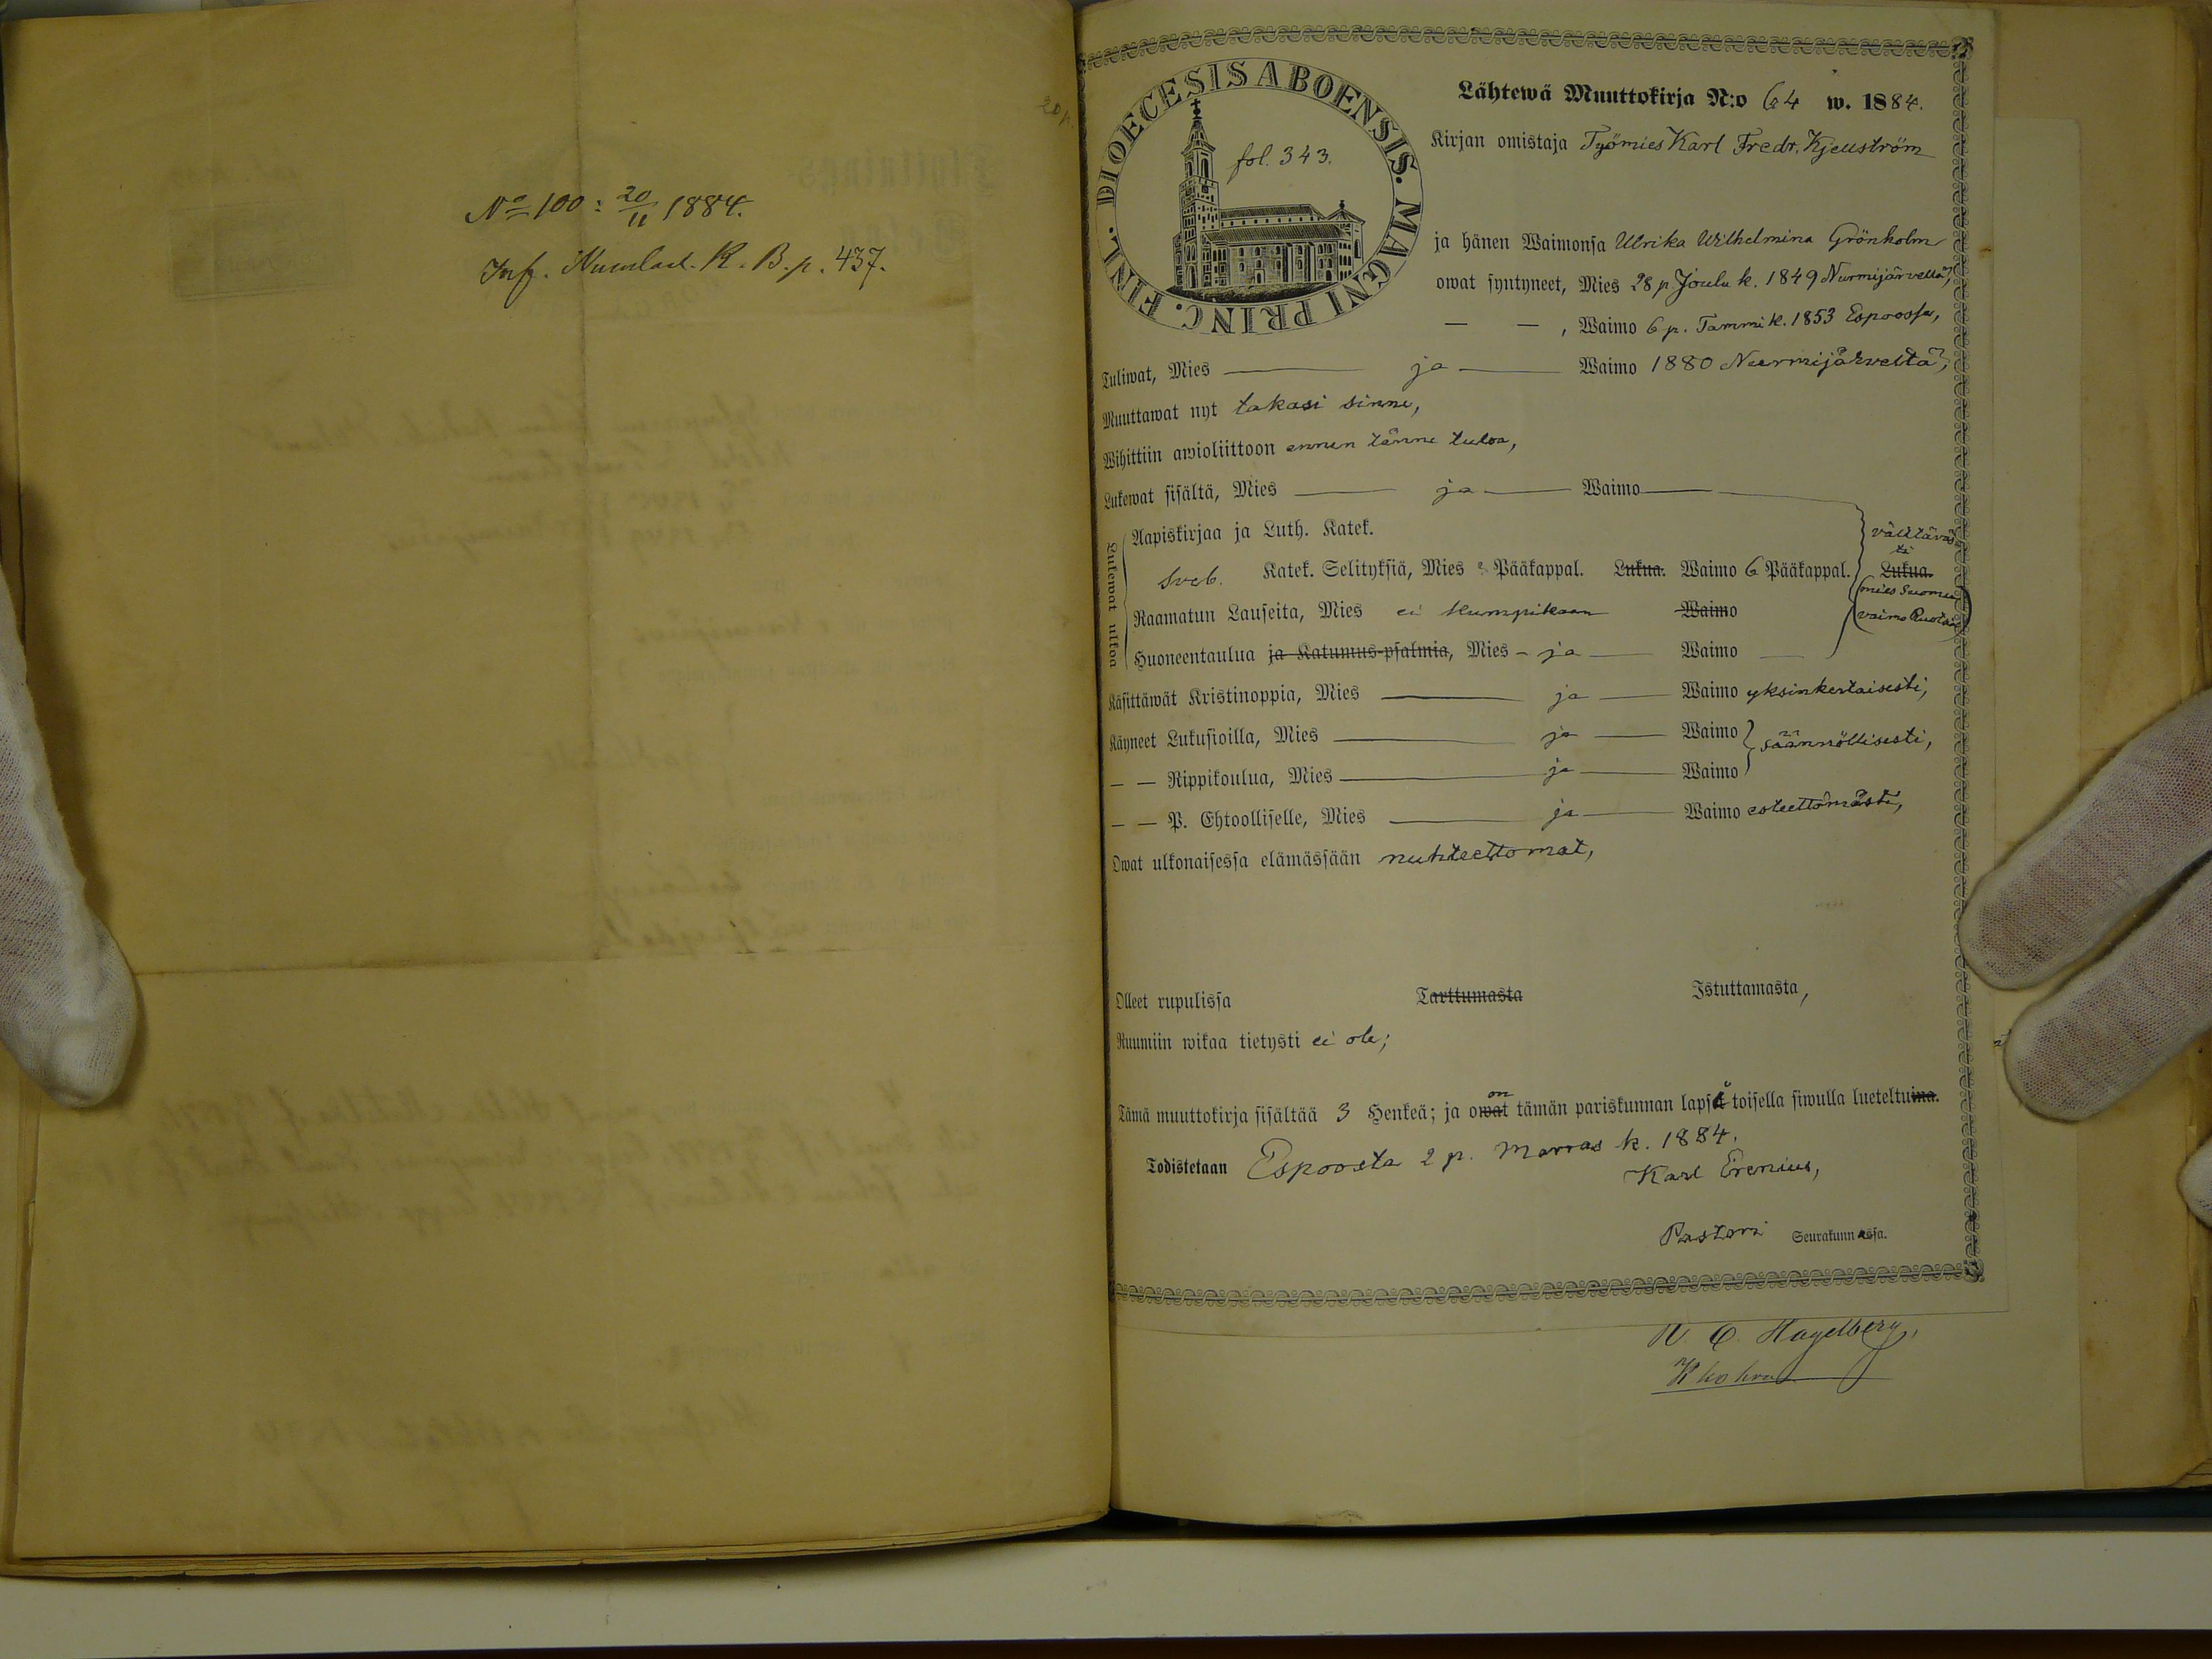 No 100: 20/11 1884.
Inf. Kumlad. K. B. p. 437.
20 p.
FINL. DIOECESIS ABOENSIS. MAGNI PRINC.
fol. 343.
Lähtewä Muuttokirja N:o 64 w. 1884.
Kirjan omistaja Työmies Karl Fredr. Kjellström
ja hänen Waimonsa Ulrika Wilhelmina Grönholm
owat syntyneet, Mies 28 p Joulu k. 1849 Nurmijärvellä,
— — , Waimo 6 p. Tammi k. 1853 Espoossa,
Tuliwat, Mies — ja — Waimo 1880 Nurmijärveltä,
Muuttawat nyt takasi sinne,
Wihittiin awioliittoon ennen tänne tuloa,
Lukewat sisältä, Mies — ja — Waimo —
Lukewat ulkoa
Aapiskirjaa ja Luth. Katek.
välttäväs
tä
Sveb. Katek. Selityksiä, Mies Pääkappal. Lukua. Waimo 6 Pääkappal. Lukua.
(mies Suomea
Raamatun Lauseita, Mies ei kumpikaan Waimo
vaimo Ruotsia)
Huoneentaulua ja Katumus-psalmia, Mies - ja — Waimo —
Käsittäwät Kristinoppia, Mies — ja — Waimo yksinkertaisesti,
Käyneet Lukusioilla, Mies — ja — Waimo
säännöllisesti,
— — Rippikoulua, Mies — ja — Waimo
— — P. Ehtoolliselle, Mies — ja — Waimo esteettömästi,
Owat ulkonaisessa elämässään nuhteettomat,
Olleet rupulissa Tarttumasta Istuttamasta,
Ruumiin wikaa tietysti ei ole;
on
Tämä muuttokirja sisältää 3 Henkeä; ja owat tämän pariskunnan lapsi toisella siwulla lueteltuina.
Todistetaan Espoosta 2 p. Marras k. 1884.
Karl Erenius,
Pastori Seurakunnassa.
Hagelberg,